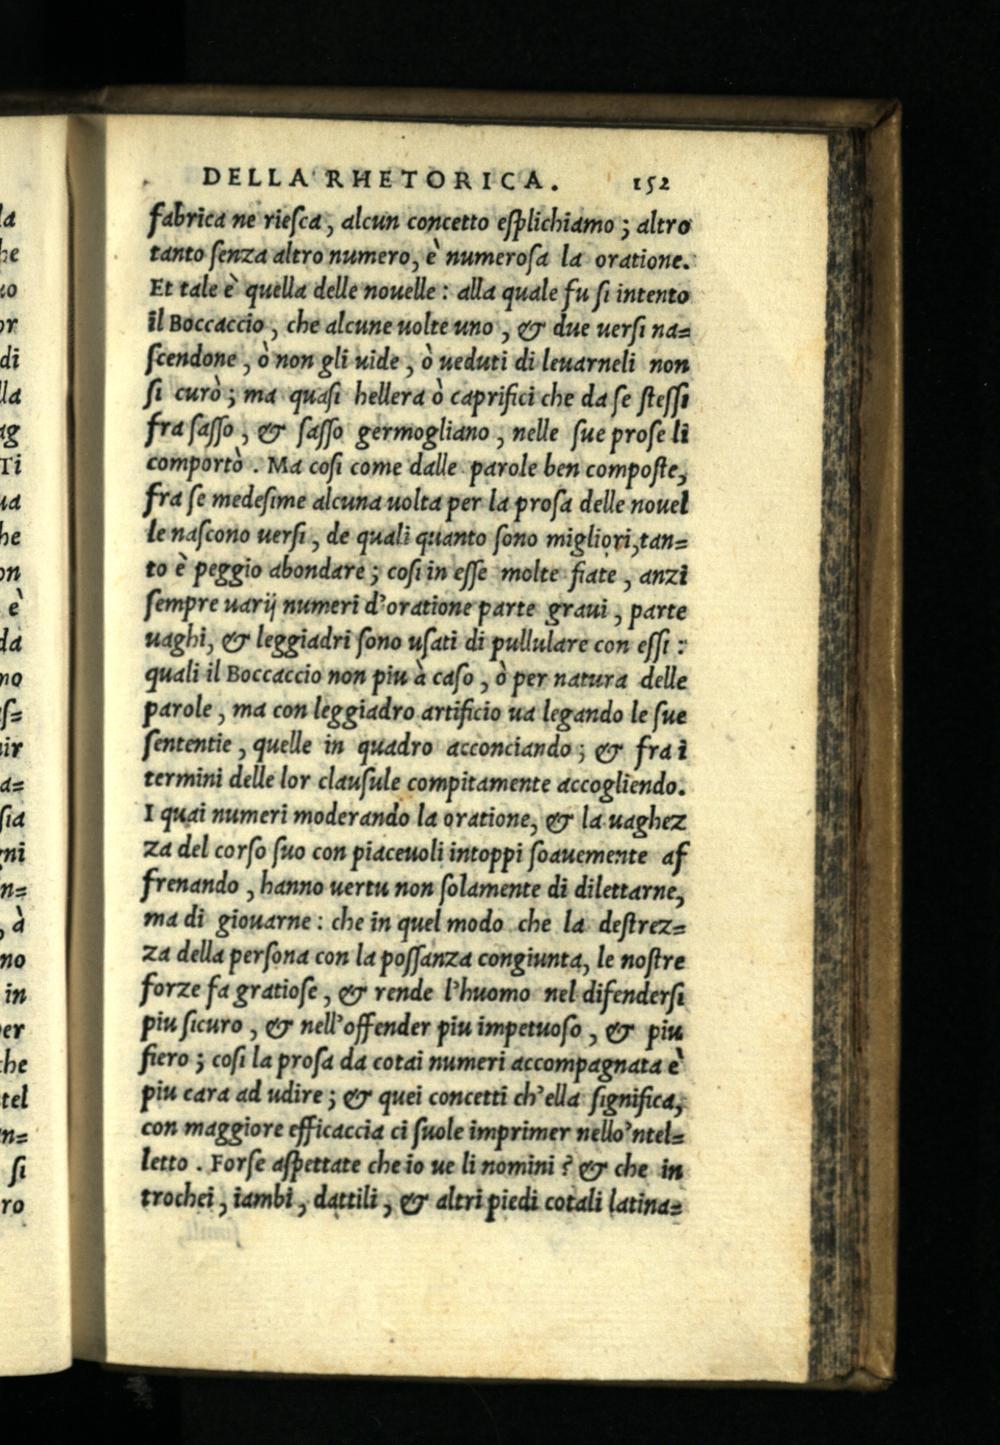 DELLA RHETORICA. 152
fabrica ne riesca, alcun concetto esplichiamo; altro
tanto senza altro numero, è numerosa la oratione.
Et tale è quella delle nouelle: alla quale fu si intento
il Boccaccio, che alcune uolte uno, & due uersi na=
scendone, ò non gli uide, ò ueduti di leuarneli non
si curò; ma quasi hellera ò caprifici che da se stessi
fra sasso, & sasso germogliano, nelle sue prose li
comportò. Ma cosi come dalle parole ben composte,
fra se medesime alcuna uolta per la prosa delle nouel
le nascono uersi, de quali quanto sono migliori, tan=
to è peggio abondare; cosi in esse molte fiate, anzi
sempre uarij numeri d'oratione parte graui, parte
uaghi, & leggiadri sono usati di pullulare con essi:
quali il Boccaccio non piu à caso, ò per natura delle
parole, ma con leggiadro artificio ua legando le sue
sententie, quelle in quadro acconciando; & fra i
termini delle lor clausule compitamente accogliendo.
I quai numeri moderando la oratione, & la uaghez
za del corso suo con piaceuoli intoppi soauemente af
frenando, hanno uertu non solamente di dilettarne,
ma di giouarne: che in quel modo che la destrez=
za della persona con la possanza congiunta, le nostre
forze fa gratiose, & rende l'huomo nel difendersi
piu sicuro, & nell'offender piu impetuoso, & piu
fiero; cosi la prosa da cotai numeri accompagnata è
piu cara ad udire; & quei concetti ch'ella significa,
con maggiore efficaccia ci suole imprimer nello'ntel=
letto. Forse aspettate che io ue li nomini? & che in
trochei, iambi, dattili, & altri piedi cotali latina=